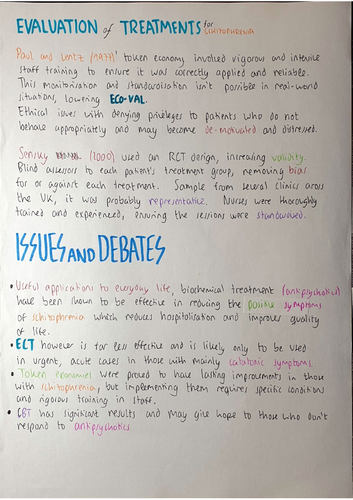 EVALUATION of TREATMENTS for SCHIZOPHRENIA
Paul and Lentz (1977)' token economy involved vigorous and intensive
staff training to ensure it was correctly applied and reliable.
This monitorisation and standardisation isn't possible in real-world
situations, lowering ECO-VAL.
Ethical issues with denying privileges to patients who do not
behave appropriately and may become de-motivated and distressed.
Sensky (2000) used an RCT design, increasing validity.
Blind assessors to each patient's treatment group, removing bias
for or against each treatment. Sample from several clinics across
the UK, it was probably representative. Nurses were thoroughly
trained and experienced, ensuring the sessions were standardised.
ISSUES AND DEBATES
• Useful applications to everyday life, biochemical treatment (antipsychotics)
have been shown to be effective in reducing the positive symptoms
of schizophrenia which reduces hospitalisation and improves quality
of life.
• ECT however is far less effective and is likely only to be used
in urgent, acute cases in those with mainly catatonic symptoms.
• Token economies were proved to have lasting improvements in those
with schizophrenia, but implementing them requires specific conditions
and rigorous training in staff.
• CBT has significant results and may give hope to those who don't
respond to antipsychotics.